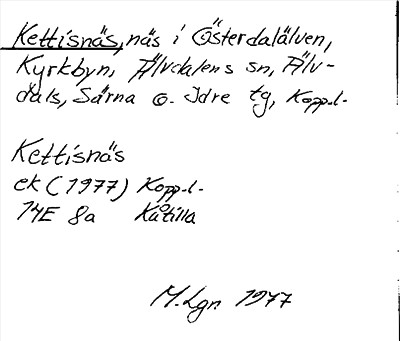 Kettisnäs, näs i Österdalälven,
Kyrkbyn, Älvdalens sn, Älv-
dals, Särna o. Idre tg, Kopp.l.
Kettisnäs
ek (1977) Kopp.l.
14E 8a Kåtilla
M. Lgn 1977